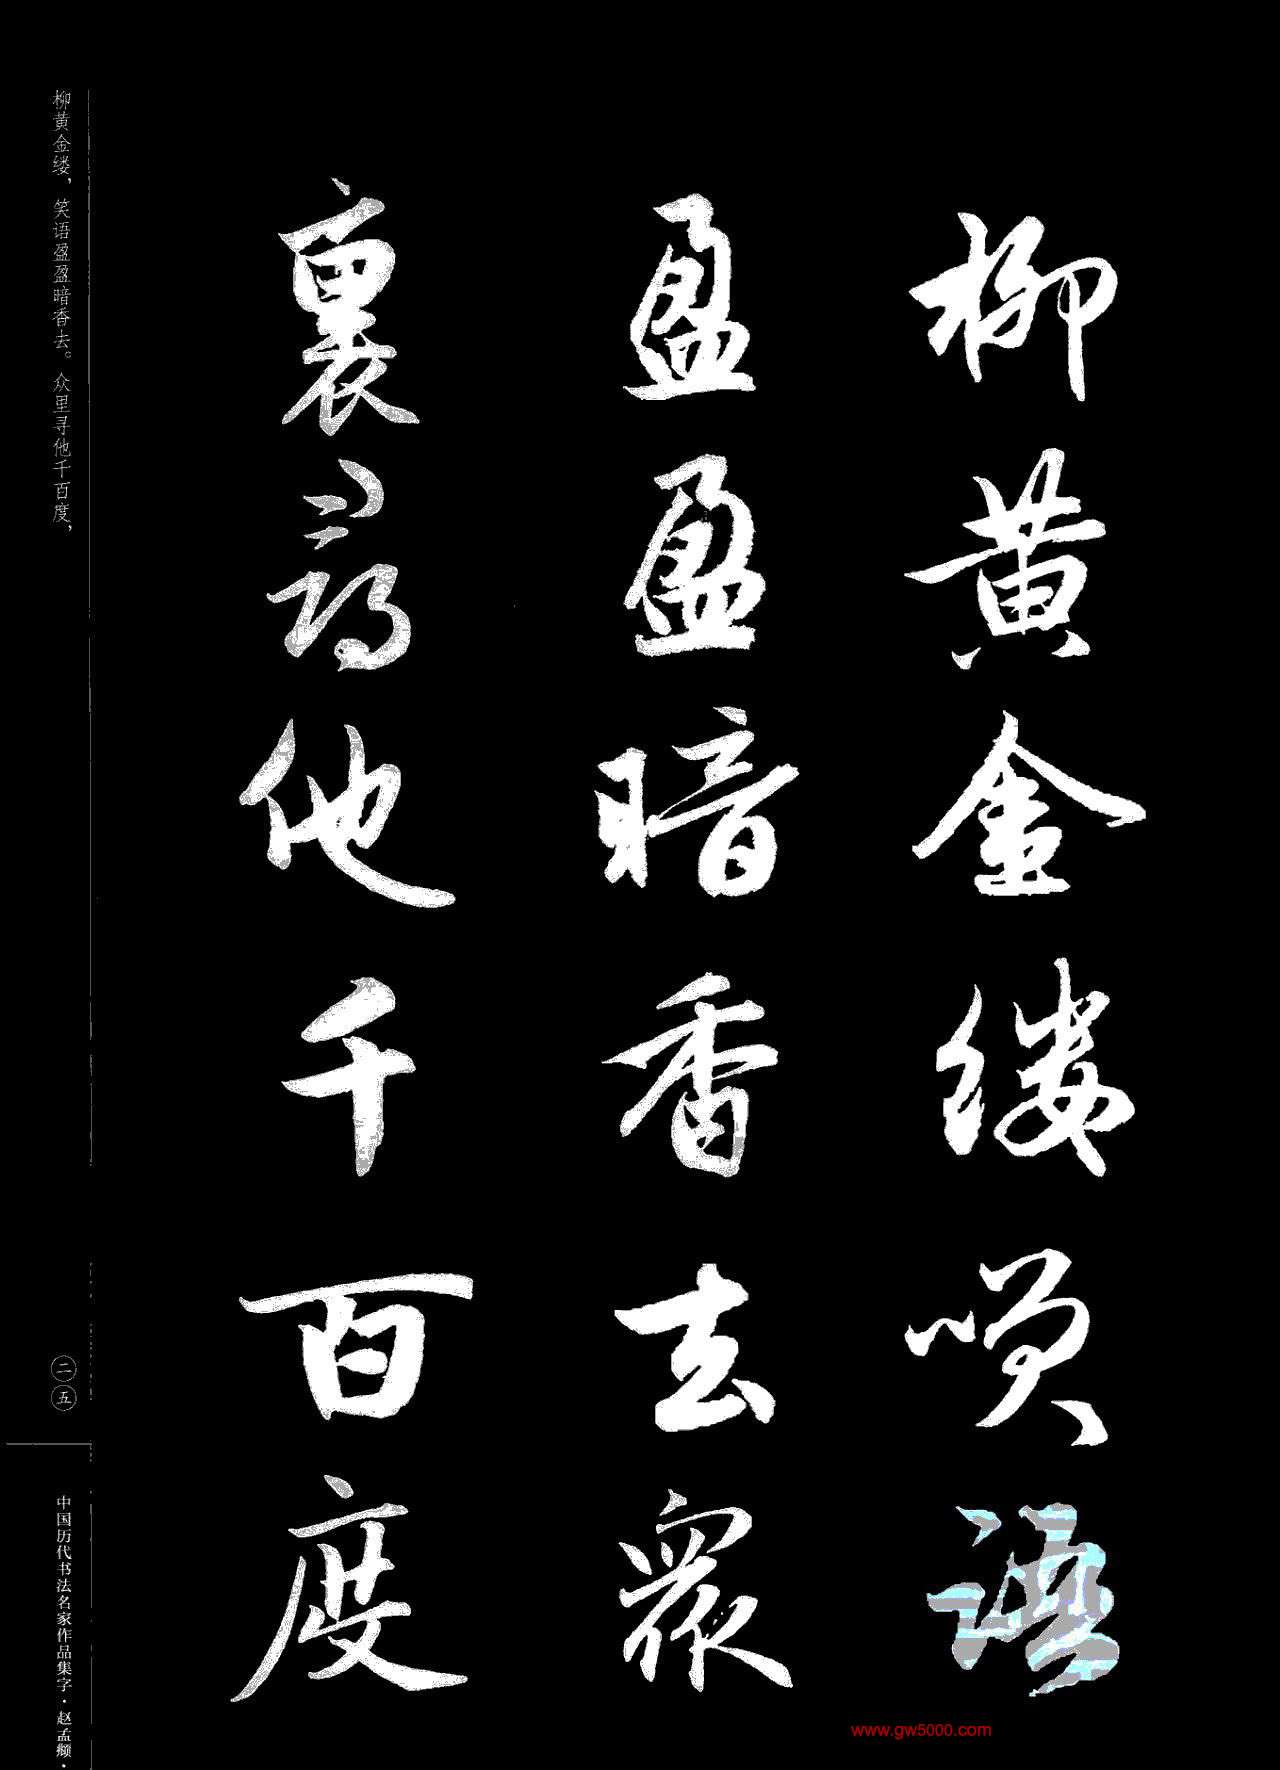 柳黄金缕唉语
盈盈暗香去眾
裏尋他千百度
柳黄金缕，笑语盈盈暗香去。众里寻他千百度，
二五
中国历代书法名家作品集字·赵孟頫·
www.gw5000.com